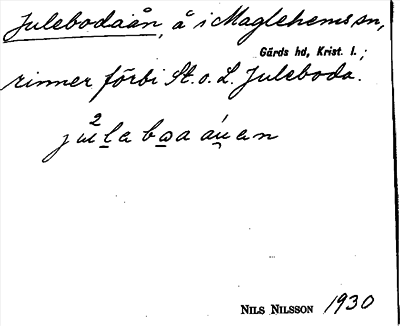 Julebodaån, å i Maglehems sn,
Gärds hd, Krist. l.;
rinner förbi St. o. L. Juleboda.
NILS NILSSON 1930